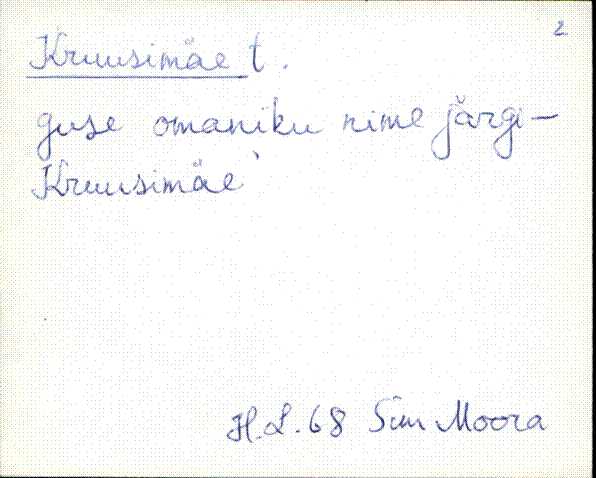 2
Kruusimäe t.
guse omaniku nime järgi -
Kruusimäe
H.L. 68 Siim Moora